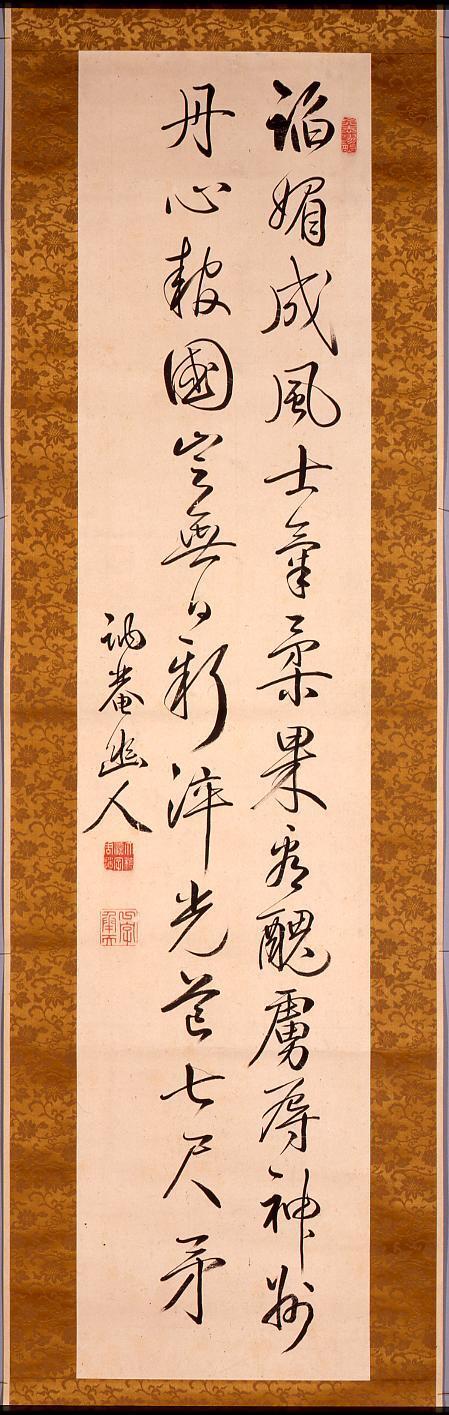 諂媚成風士氣柔果看醜虜辱神州
丹心報國豈無日新淬光芒七尺矛
訥菴幽人